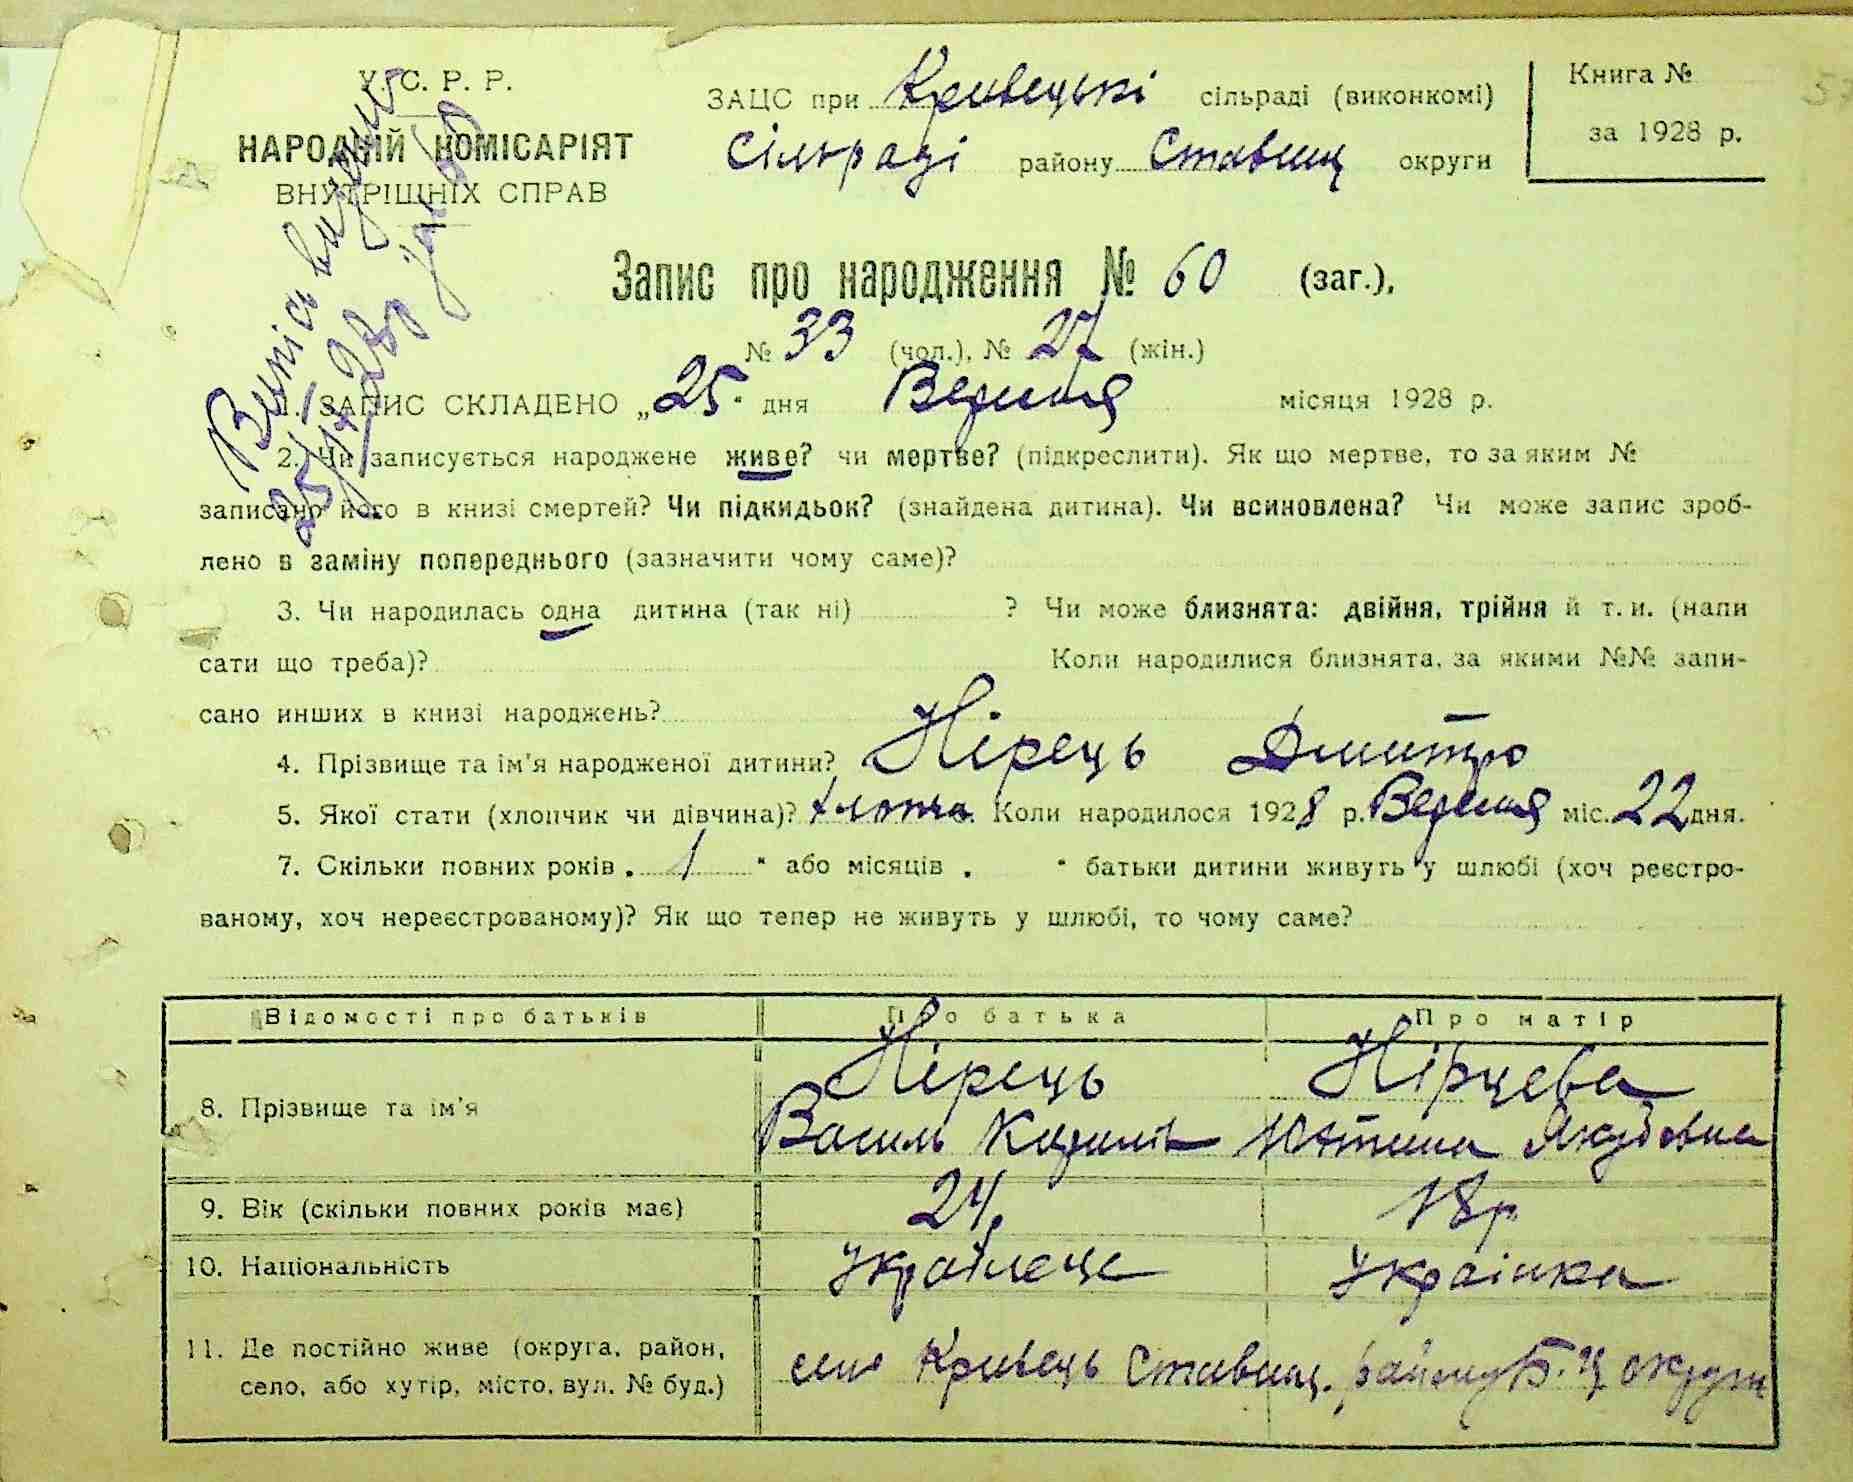 У. С. Р. Р.
НАРОДНІЙ КОМІСАРІЯТ
ВНУТРІШНІХ СПРАВ
ЗАЦС при Кривецькі сільраді (виконкомі)
Сільраді району Ставищ округи
Книга №
за 1928 р.
Випісь видано
25/IX 28 р
Запис про народження № 60 (заг.),
№ 33 (чол.), № 27 (жін.)
1. ЗАПИС СКЛАДЕНО „25" дня Вересня місяця 1928 р.
2. Чи записується народжене живе? чи мертве? (підкреслити). Як що мертве, то за яким №
записано його в книзі смертей? Чи підкидьок? (знайдена дитина). Чи всиновлена? Чи може запис зроб-
лено в заміну попереднього (зазначити чому саме)?
3. Чи народилась одна дитина (так ні) ? Чи може близнята: двійня, трійня й т. и. (напи
сати що треба)? Коли народилися близнята, за якими №№ запи-
сано инших в книзі народжень?
4. Прізвище та ім'я народженої дитини? Нірець Дмитро
5. Якої стати (хлопчик чи дівчина)? хлопчи. Коли народилося 1928 р. Вересня міс. 22 дня.
7. Скільки повних років „ 1 " або місяців „ " батьки дитини живуть у шлюбі (хоч реєстро-
ваному, хоч нереєстрованому)? Як що тепер не живуть у шлюбі, то чому саме?
Відомості про батьків Про батька Про матір
8. Прізвище та ім'я Нірець Нірцева
Василь Кирилів Юстина Якубовна
9. Вік (скільки повних років має) 24. 18 р
10. Національність Українець Українка
11. Де постійно живе (округа, район,
село, або хутір, місто, вул. № буд.) село Кривець Ставищ. району Б. Ц округи